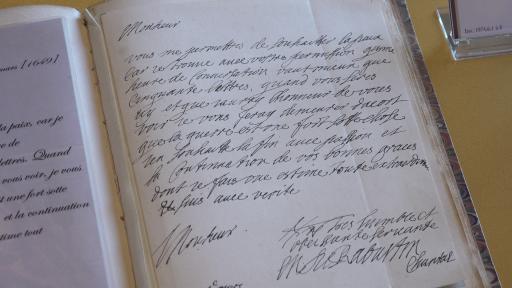 mars [1649]
la paix, car je
e de
lettres. Quand
vous voir, je vous
t une fort sotte
et la continuation
time tout
Monsieur
vous me permettes de souhaitter la paix
car je trouve avec votre permission qune
heure de conversation vaut mieux que
cinquante lettres, quand vous seres
icy et que jauray lhonneur de vous
voir je vous feray demeurer dacort
que la guerre est une fort sotte chose
jen souhaitte la fin avec passion et
la continuation de vos bonnes graces
dont je fais une estime toute
suis avec verite
Monsieur
tres humble et
servante
Rabutin
Chantal
mars